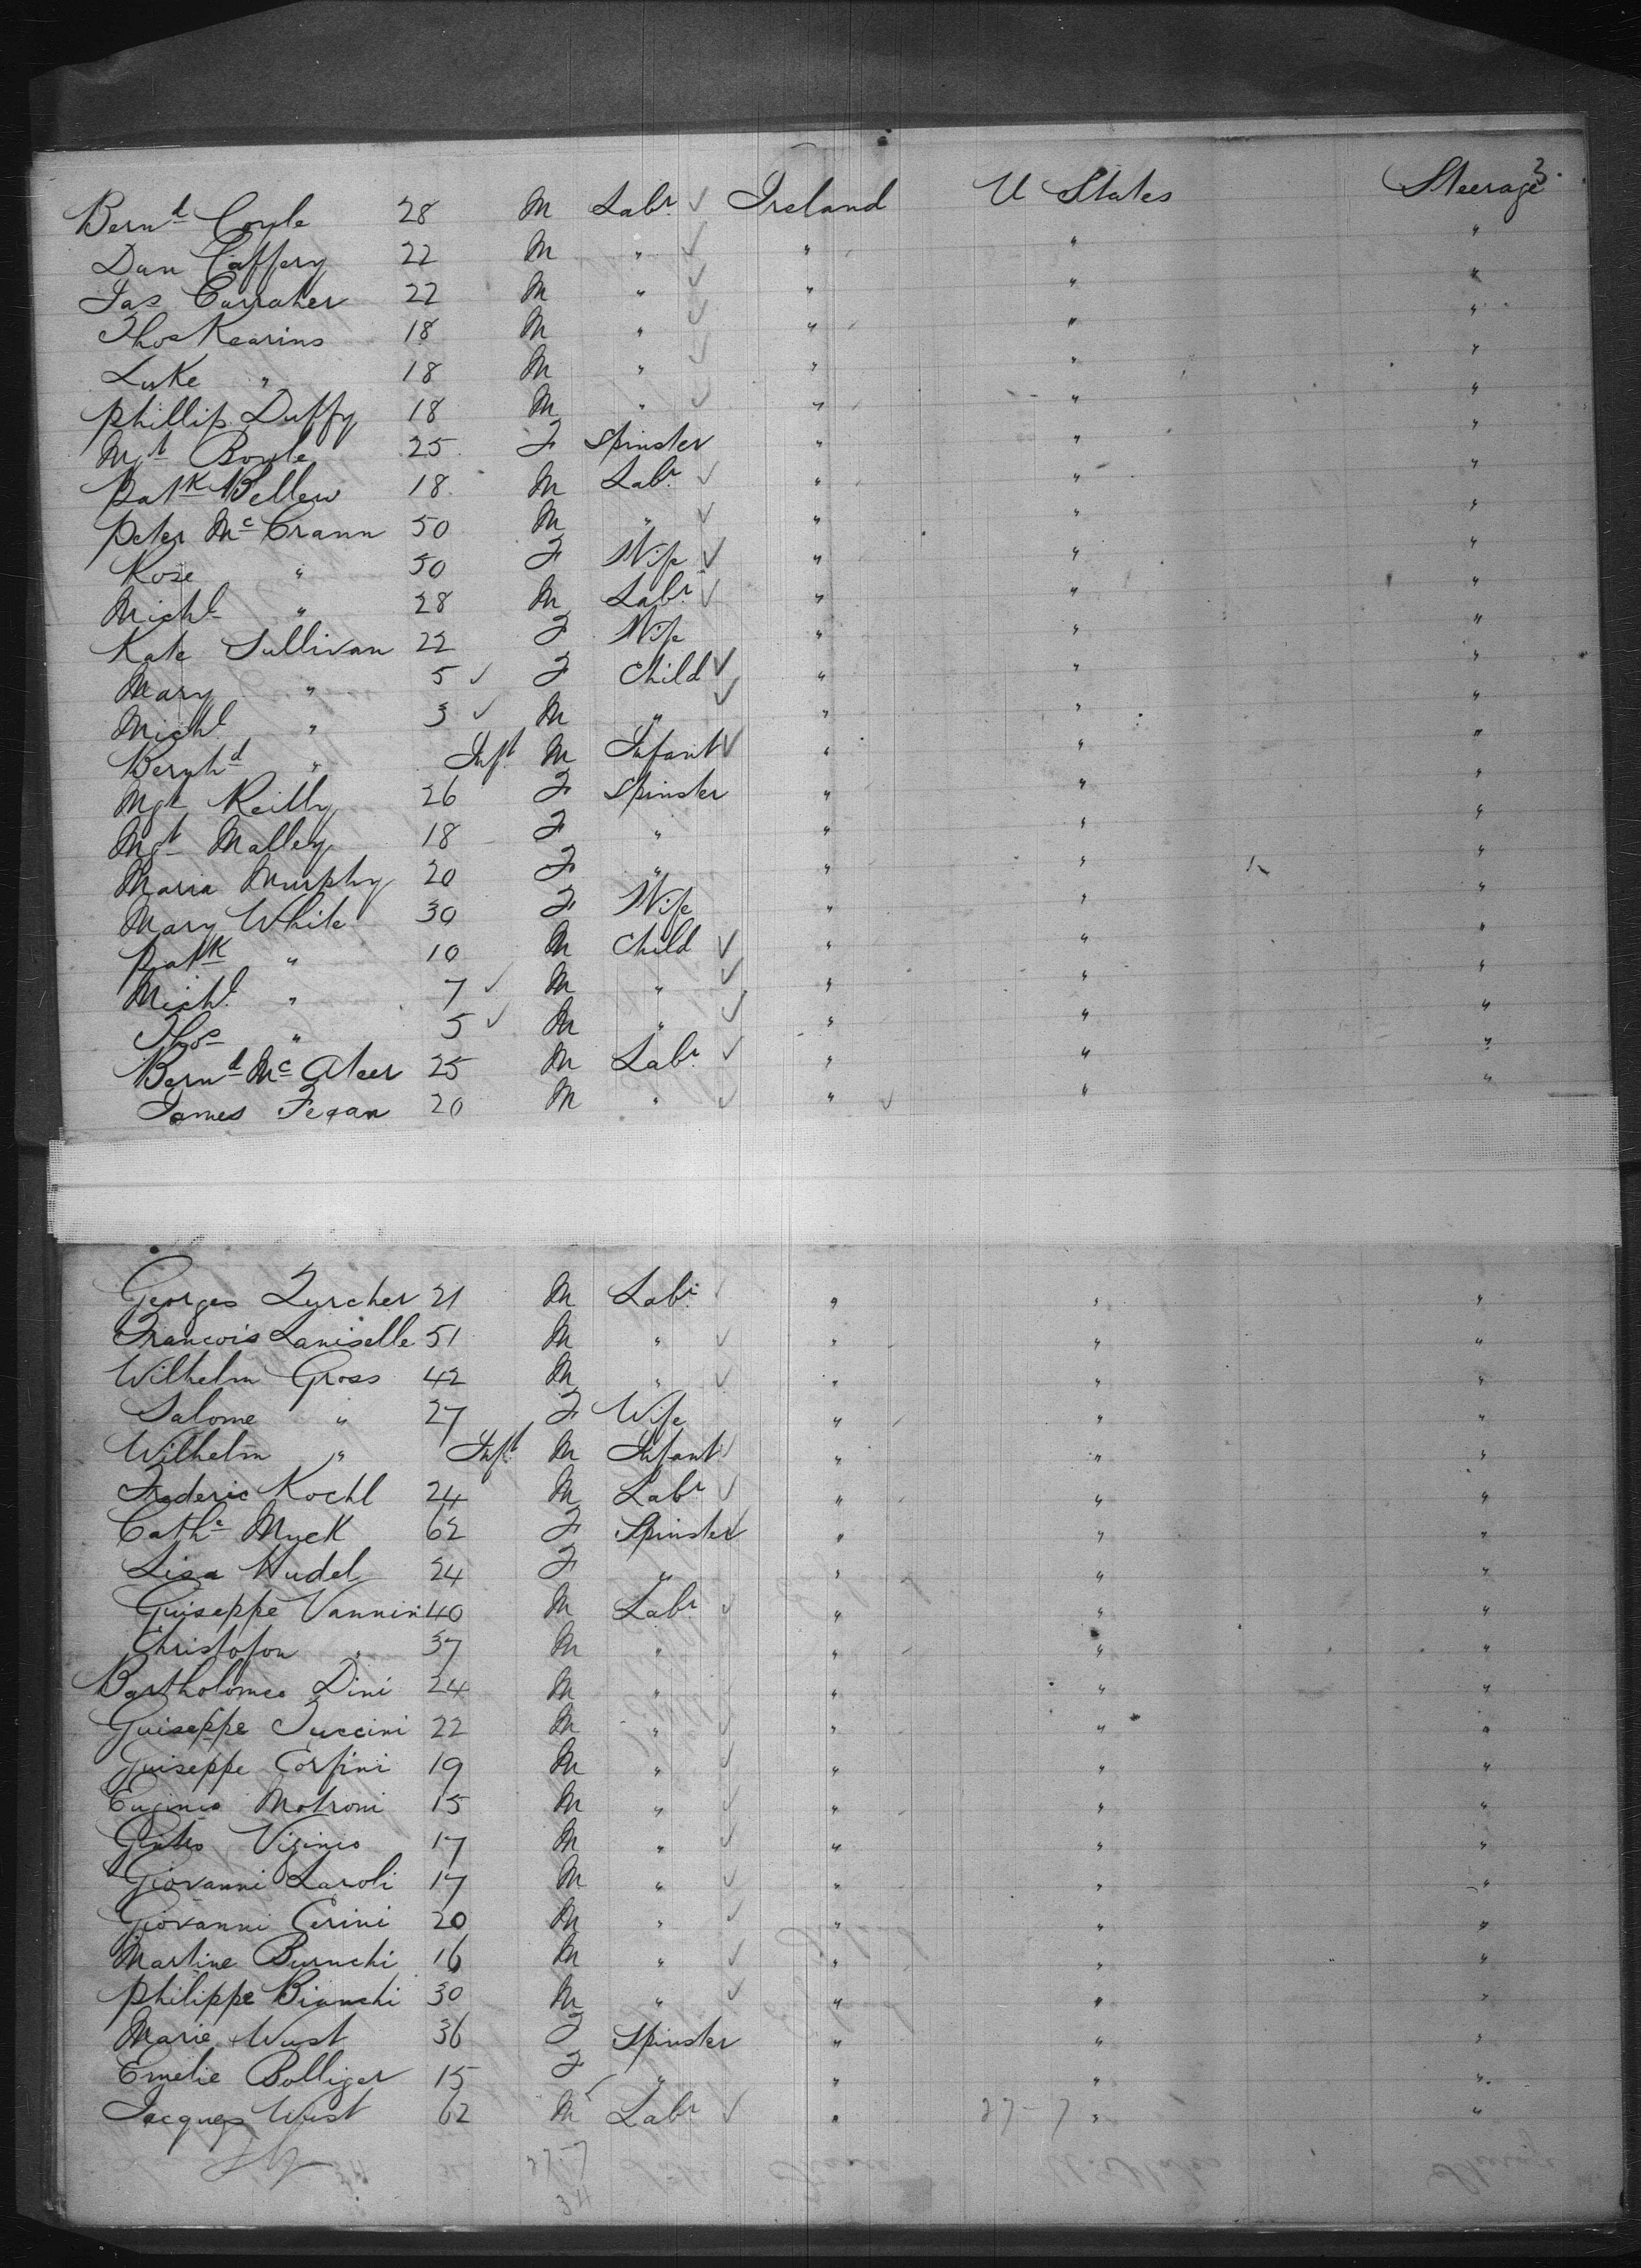 3.
Bernd Coyle 28 M Labr ✓ Ireland U States Steerage
Dan Caffery 22 M " ✓ " " "
Jas Carraher 22 M " ✓ " " "
Thos Kearins 18 M " ✓ " " "
Luke " 18 M " ✓ " " "
Phillip Duffy 18 M " ✓ " " "
Mgt Boyle 25 F Spinster " " "
Patk Bellew 18 M Labr ✓ " " "
Peter Mc Crann 50 M " ✓ " " "
Rose " 50 F Wife ✓ " " "
Michl " 28 M Labr ✓ " " "
Kate Sullivan 22 F Wife " " "
Mary " 5 ✓ F Child ✓ " " "
Michl " 3 ✓ M " ✓ " " "
Bernhd " Inft M Infant ✓ " " "
Mgt Reilly 26 F Spinster " " "
Mgt Malley 18 F " " " "
Maria Murphy 20 F " " " "
Mary White 30 F Wife " " "
Patk " 10 M Child ✓ " " "
Michl " 7 ✓ M " ✓ " " "
Thos " 5 ✓ M " ✓ " " "
Bernd Mc Ateer 25 M Labr ✓ " " "
James Fegan 20 M " ✓ " ✓ " "
Georges Zurcher 21 M Labr ✓ " " "
Francois Laniselle 51 M " ✓ " " "
Wilhelm Gross 42 M " ✓ " " "
Salome " 27 F Wife " " "
Wilhelm " Inft M Infant ✓ " " "
Frederic Kochl 24 M Labr ✓ " " "
Cathe Myck 62 F Spinster ✓ " " "
Lisa Hudel 24 F " " " "
Guiseppe Vannini 40 M Labr ✓ " " "
Christofon " 37 M " " " "
Bartholomeo Dini 24 M " ✓ " " "
Guiseppe Tuccini 22 M " ✓ " " "
Guiseppe Corfini 19 M " ✓ " " "
Eugenio Motroni 15 M " ✓ " " "
Vizinio 17 M " ✓ " " "
Giovanni Laroli 17 M " ✓ " " "
Giovanni Cerini 20 M " ✓ " " "
Martine Burnchi 16 M " ✓ " " "
Philippe Bianchi 30 M " ✓ " " "
Marie Wust 36 F Spinster " " "
Emelie Bolliger 15 F " " " "
Jacques Wust 62 M Labr ✓ " 27-7 " "
27-7
34